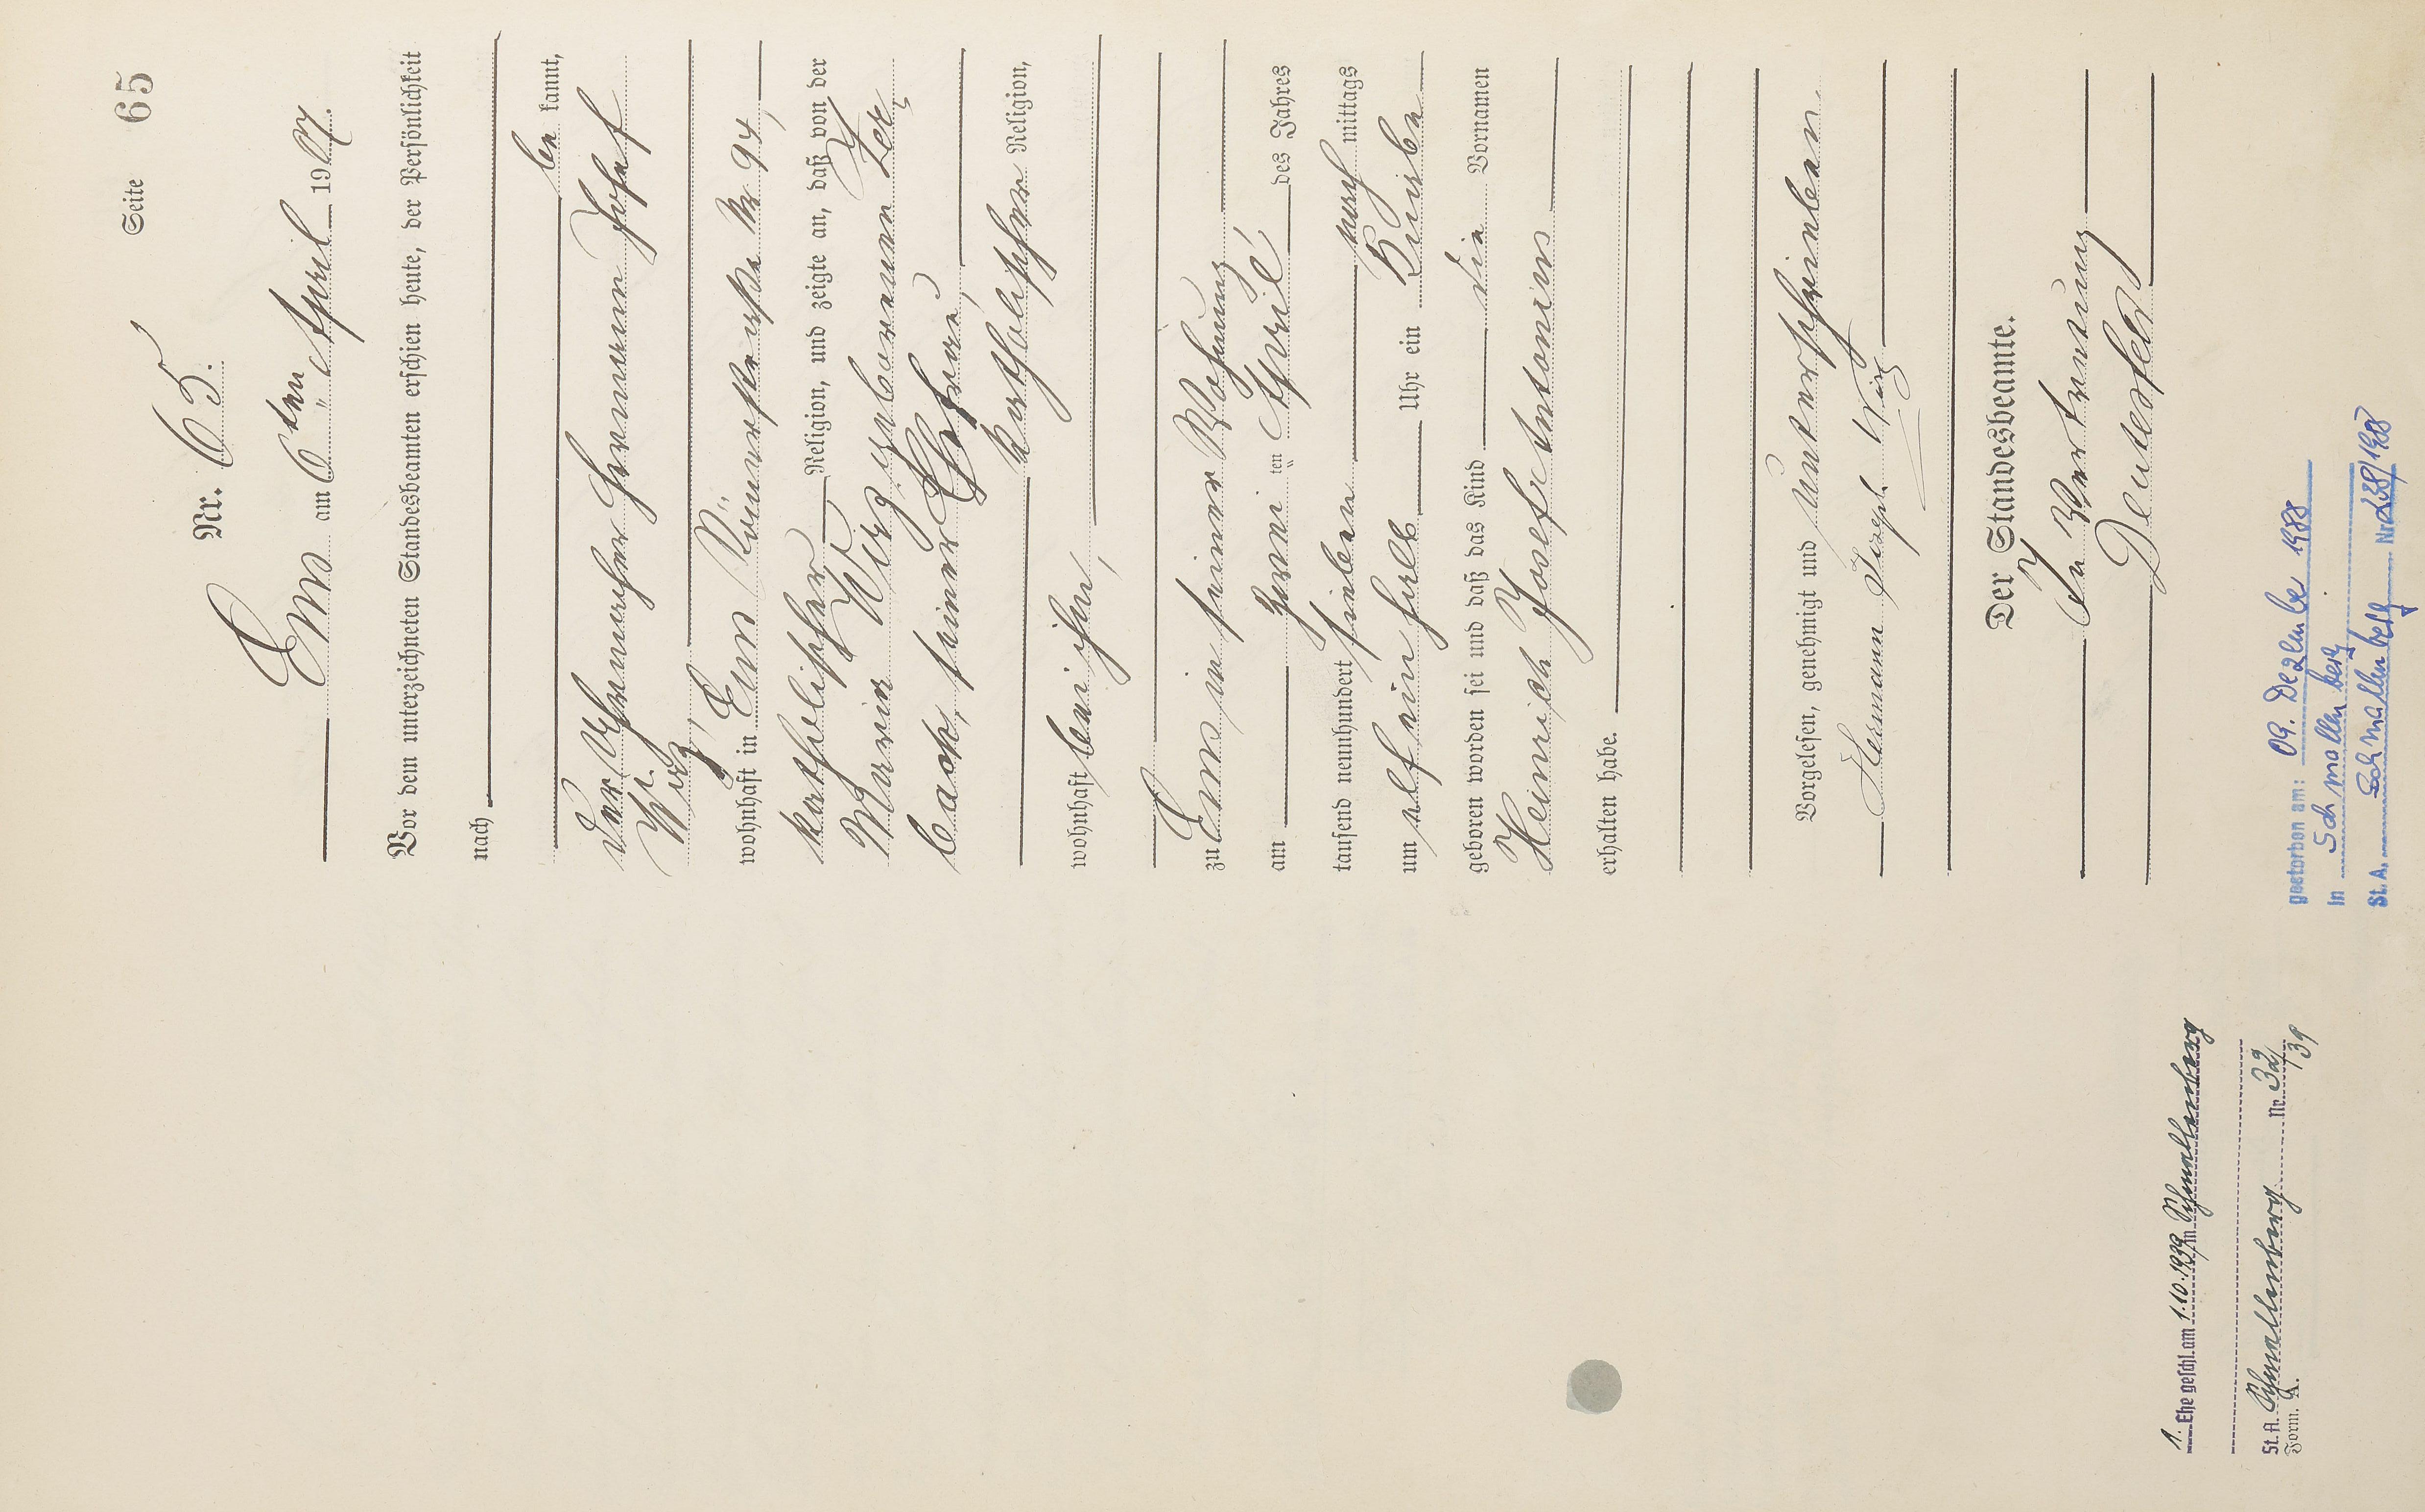 Seite 65
Nr. 65.
Ems am 6ten April 1907.
Vor dem unterzeichneten Standesbeamten erschien heute, der Persönlichkeit
nach
be kannt,
der Uhrmacher Hermann Josef
Wirz,
wohnhaft in Ems Römerstraße Nr 94,
katholischer Religion, und zeigte an, daß von der
Maria Wirz geborenen Zer
back, seiner Ehefrau,
katholischer Religion,
wohnhaft bei ihm,
zu Ems in seiner Wohnung
am zwei ten April des Jahres
tausend neunhundert sieben nach mittags
um elf ein halb Uhr ein Knabe
geboren worden sei und daß das Kind die Vornamen
Heinrich Josef Antonius
erhalten habe.
Vorgelesen, genehmigt und unterschrieben.
Hermann Joseph Wirz
Der Standesbeamte.
In Vertretung
Deusfeld
1. Ehe geschl. am 1.10.1939 in Schmallenberg
St. A. Schmallenberg Nr. 32/39
Form. A.
gestorben am: 09. Dezembe 1988
in Schmallenberg
St. A. Schmallenberg Nr 238/1988